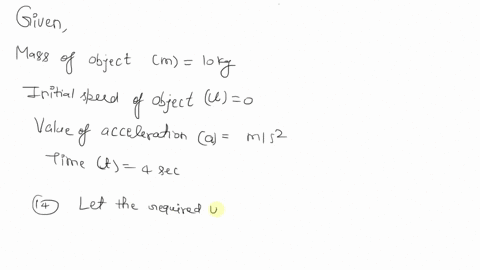 Given,
Mass of object (m) = 10kg
Initial speed of object (u) = 0
Value of acceleration (a) = m/s²
Time (t) = 4 sec
(14) Let the required u